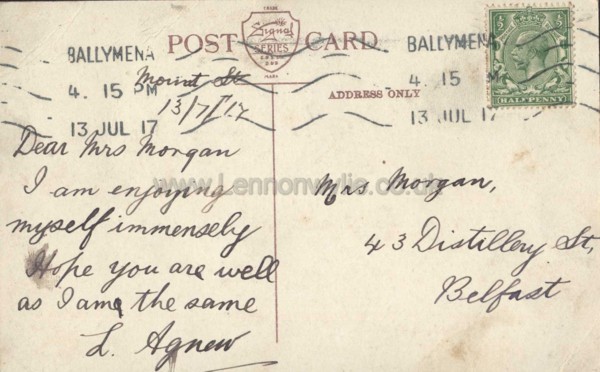 TRADE
Signal
SERIES
MARK
POST CARD
ADDRESS ONLY
BALLYMENA
4. 15 PM
13 JUL 17
BALLYMENA
4. 15
13 JUL 17
HALFPENNY
Mount St
13/7/17
Dear Mrs Morgan
I am enjoying
myself immensely
Hope you are well
as I am the same
L. Agnew
Mrs. Morgan,
43 Distillery St,
Belfast
www.Lennonwylie.co.uk